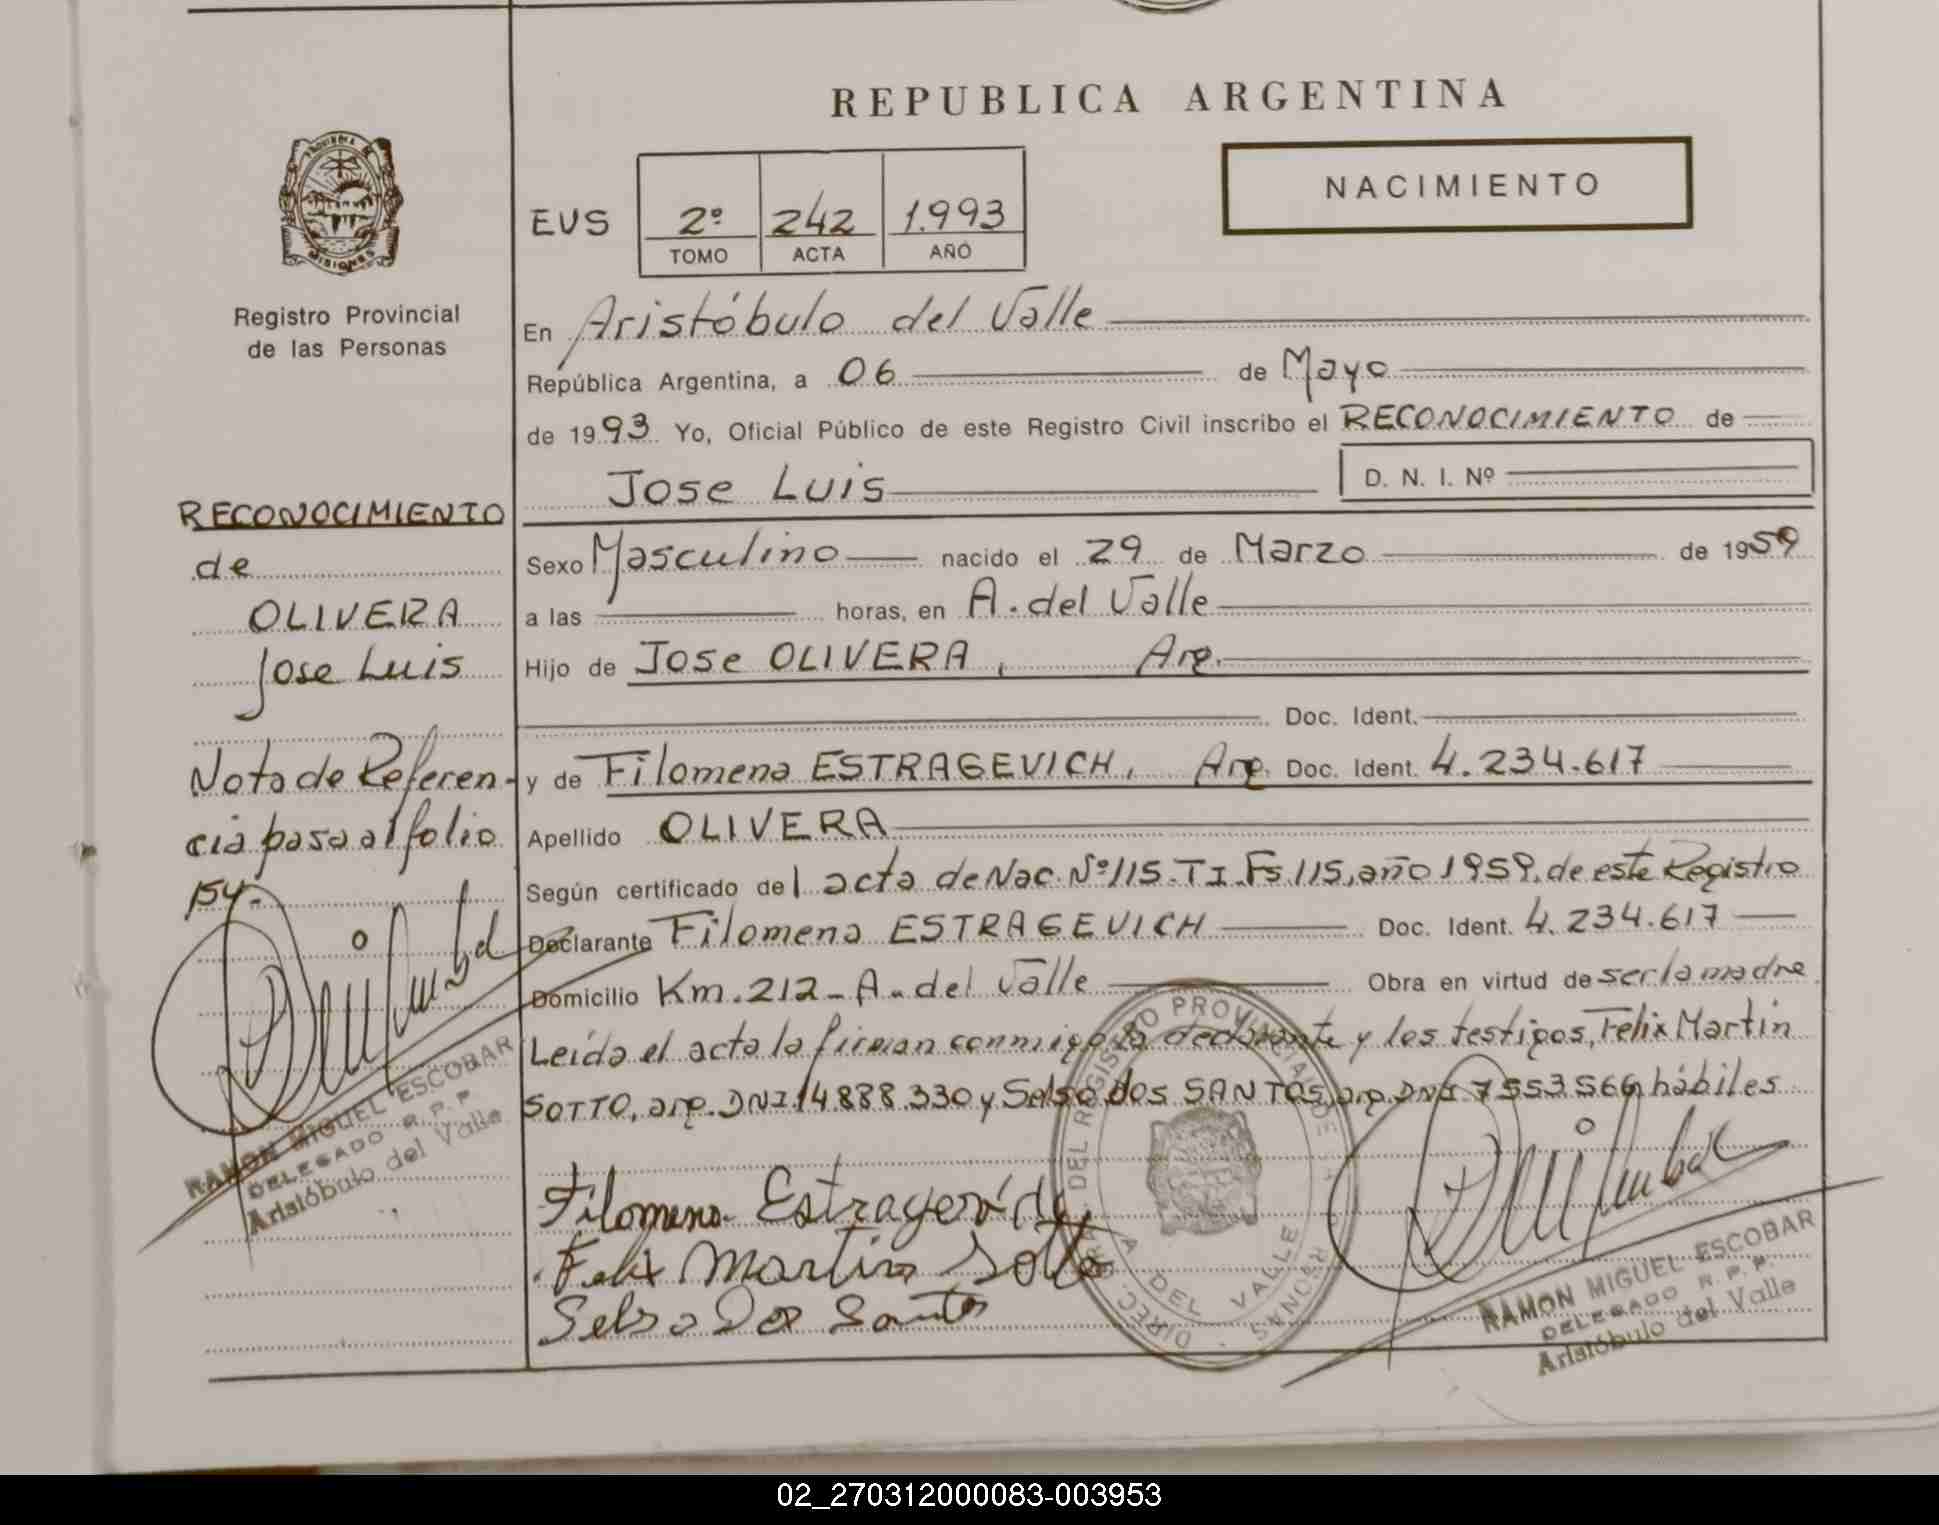 REPUBLICA ARGENTINA
NACIMIENTO
EVS 2º 242 1.993
TOMO ACTA AÑO
PROVINCIA DE MISIONES
Registro Provincial
de las Personas
RECONOCIMIENTO
de
OLIVERA
Jose Luis
Nota de Referen-
cia pasa al folio
154.-
RAMON MIGUEL ESCOBAR
DELEGADO R. P. P.
Aristóbulo del Valle
En Aristóbulo del Valle
República Argentina, a 06 de Mayo
de 1993 Yo, Oficial Público de este Registro Civil inscribo el RECONOCIMIENTO de
Jose Luis D. N. I. Nº
Sexo Masculino nacido el 29 de Marzo de 1959
a las horas, en A. del Valle
Hijo de Jose OLIVERA, Arg.
Doc. Ident.
y de Filomena ESTRAGEVICH, Arg. Doc. Ident. 4.234.617
Apellido OLIVERA
Según certificado del acta de Nac. Nº 115. T I. Fs 115, año 1959, de este Registro
Declarante Filomena ESTRAGEVICH Doc. Ident. 4.234.617
Domicilio Km. 212 - A. del Valle Obra en virtud de ser la madre
Leída el acta la firman conmigo la declarante y los testigos, Felix Martin
SOTTO, arg. DNI 14.888.330 y Selso DOS SANTOS, arg DNI 7553566, hábiles
Filomena Estragevich
Felix Martin Sotto
Selso Dos Santos
DIREC. GRAL. DEL REGISTRO PROVINCIAL DE LAS PERSONAS
A DEL VALLE
RAMON MIGUEL ESCOBAR
DELEGADO R. P. P.
Aristóbulo del Valle
02_270312000083-003953